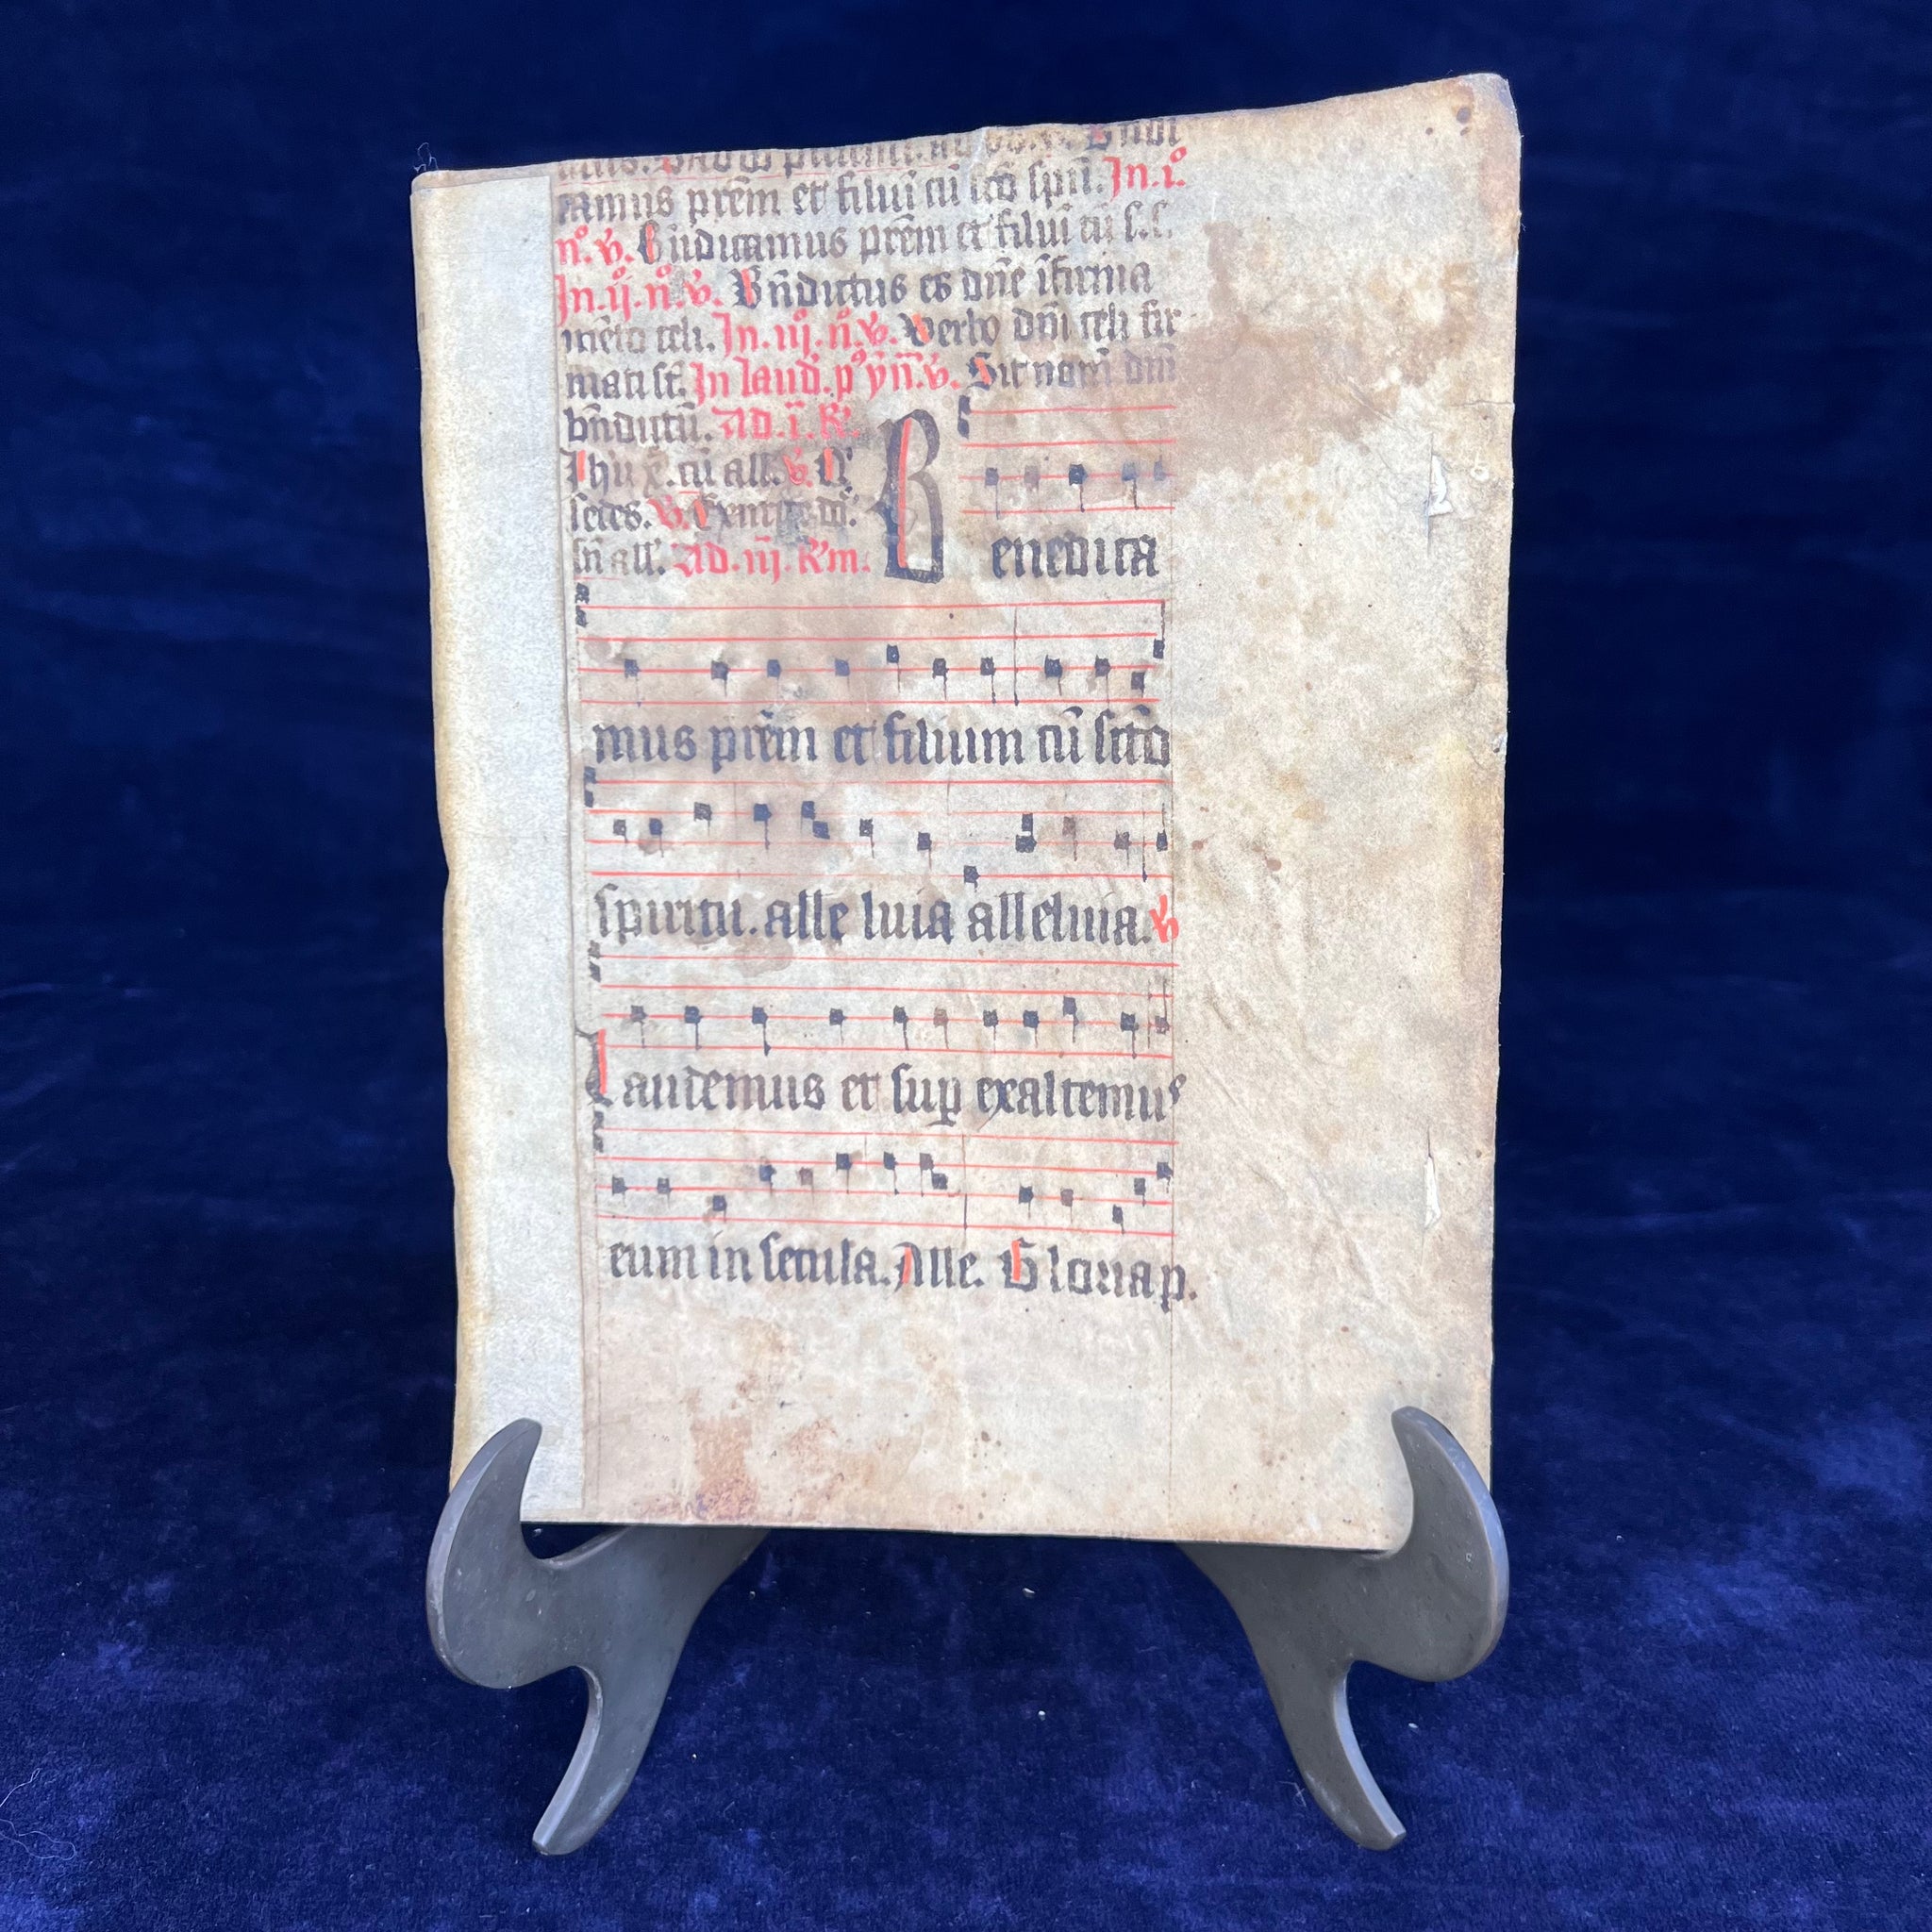 tamus prēm et filiū cū scō spū. In. i.º
nº. v. Bn̄dicamus prēm et filiū cū s. s.
In. ij.º nº. v. Bn̄dictus es dn̄e ī firma
mēto celi. In. iij.º nº. v. Verbo dn̄i celi fir
mati st̄. In laud. pº yn̄. v. Sit nom̄ dn̄i
bn̄dictū. Ad. i. R.
Ihu x̄. cū all. v. Q'
sedes. v. Exurge dn̄e.
sn̄ all'. Ad. iij. Rm.
Benedica
mus prēm et filium cū scto
spiritu. alle luia alleluia. v
Laudemus et sup exaltemus
eum in secula. Alle. Gloria p.